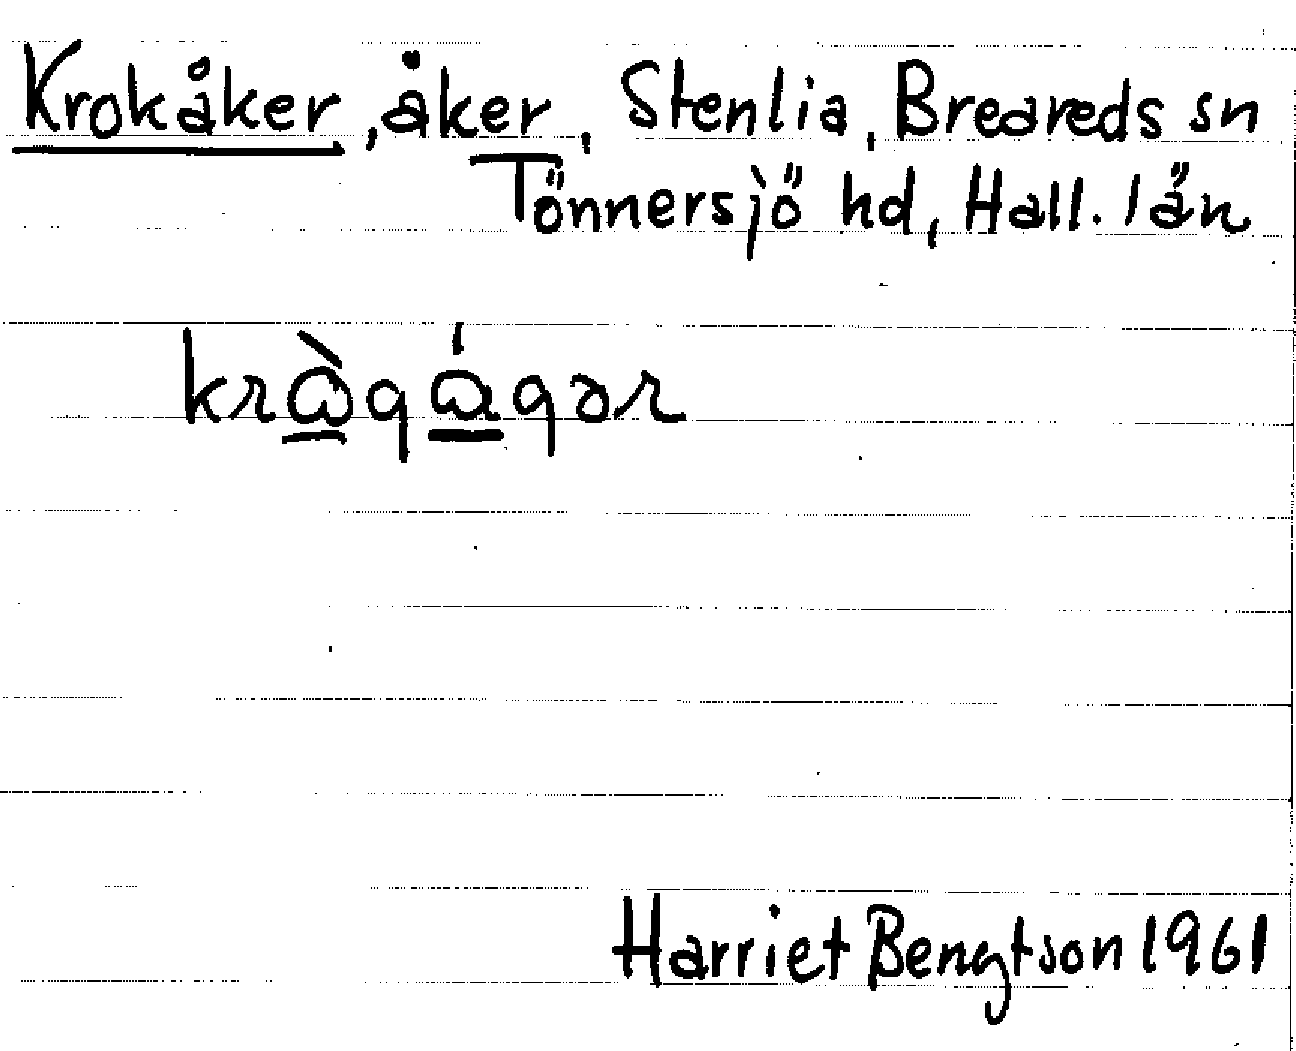 Krokåker, åker, Stenlia, Breareds sn
Tönnersjö hd, Hall. län
krɷ̀qɷ́qər
Harriet Bengtson 1961